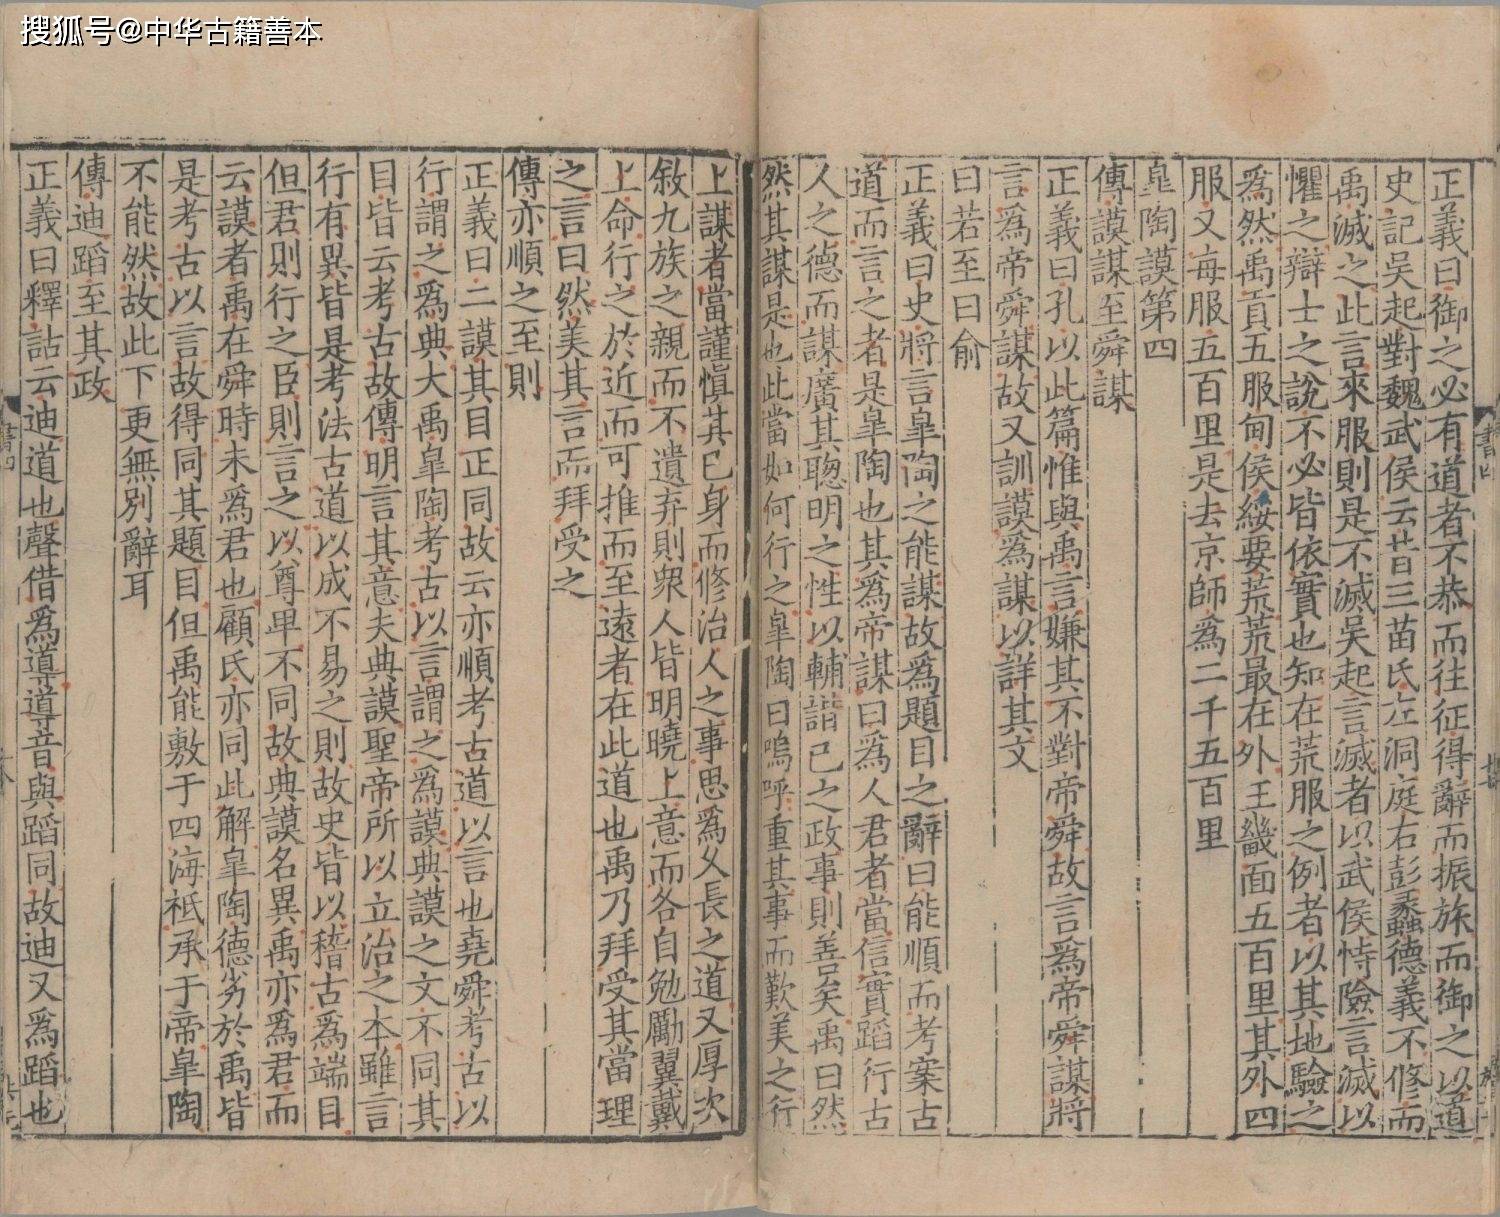 搜狐号@中华古籍善本
正義曰御之必有道者不恭而往征得辭而振旅而御之以道
史記吴起對魏武侯云昔三苗氏左洞庭右彭蠡德義不修而
禹滅之此言來服則是不滅吴起言滅者以武侯恃險言滅以
懼之辯士之說不必皆依實也知在荒服之例者以其地驗之
爲然禹貢五服甸侯綏要荒荒最在外王畿面五百里其外四
服又每服五百里是去京師爲二千五百里
皐陶謨第四
傳謨謀至舜謀
正義曰孔以此篇惟與禹言嫌其不對帝舜故言爲帝舜謀將
言爲帝舜謀故又訓謨爲謀以詳其文
曰若至曰俞
正義曰史將言皐陶之能謀故爲題目之辭曰能順而考案古
道而言之者是皐陶也其爲帝謀曰爲人君者當信實蹈行古
人之德而謀廣其聰明之性以輔諧已之政事則善矣禹曰然
然其謀是也此當如何行之皐陶曰嗚呼重其事而歎美之行
上謀者當謹慎其已身而修治人之事思爲久長之道又厚次
敘九族之親而不遺弃則衆人皆明曉上意而各自勉勵翼戴
上命行之於近而可推而至遠者在此道也禹乃拜受其當理
之言曰然美其言而拜受之
傳亦順之至則
正義曰二謨其目正同故云亦順考古道以言也堯舜考古以
行謂之爲典大禹皐陶考古以言謂之爲謨典謨之文不同其
目皆云考古故傳明言其意夫典謨聖帝所以立治之本雖言
行有異皆是考法古道以成不易之則故史皆以稽古爲端目
但君則行之臣則言之以尊卑不同故典謨名異禹亦爲君而
云謨者禹在舜時未爲君也顧氏亦同此解皐陶德劣於禹皆
是考古以言故得同其題目但禹能敷于四海祗承于帝皐陶
不能然故此下更無別辭耳
傳迪蹈至其政
正義曰釋詁云迪道也聲借爲導導音與蹈同故迪又爲蹈也